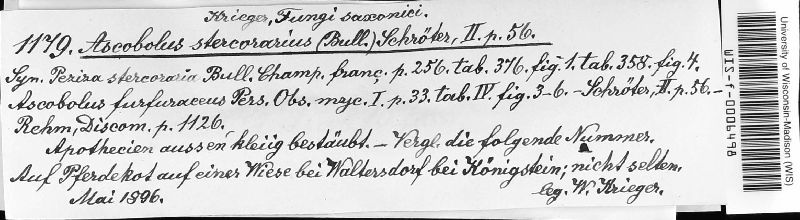 Krieger, Fungi saxonici.
1179. Ascobolus stercorarius (Bull.) Schröter, II. p. 56.
Syn. Peziza stercoraria Bull. Champ. franç. p. 256. tab. 376. fig. 1. tab. 358. fig. 4.
Ascobolus furfuraceus Pers. Obs. myc. I. p. 33. tab. IV fig. 3-6. – Schröter, II. p. 56. –
Rehm, Discom. p. 1126.
Apothecien aussen kleiig bestäubt. – Vergl. die folgende Nummer.
Auf Pferdekot auf einer Wiese bei Waltersdorf bei Königstein; nicht selten.
Mai 1896.
leg. W. Krieger.
University of Wisconsin-Madison (WIS)
WIS-f-0006498